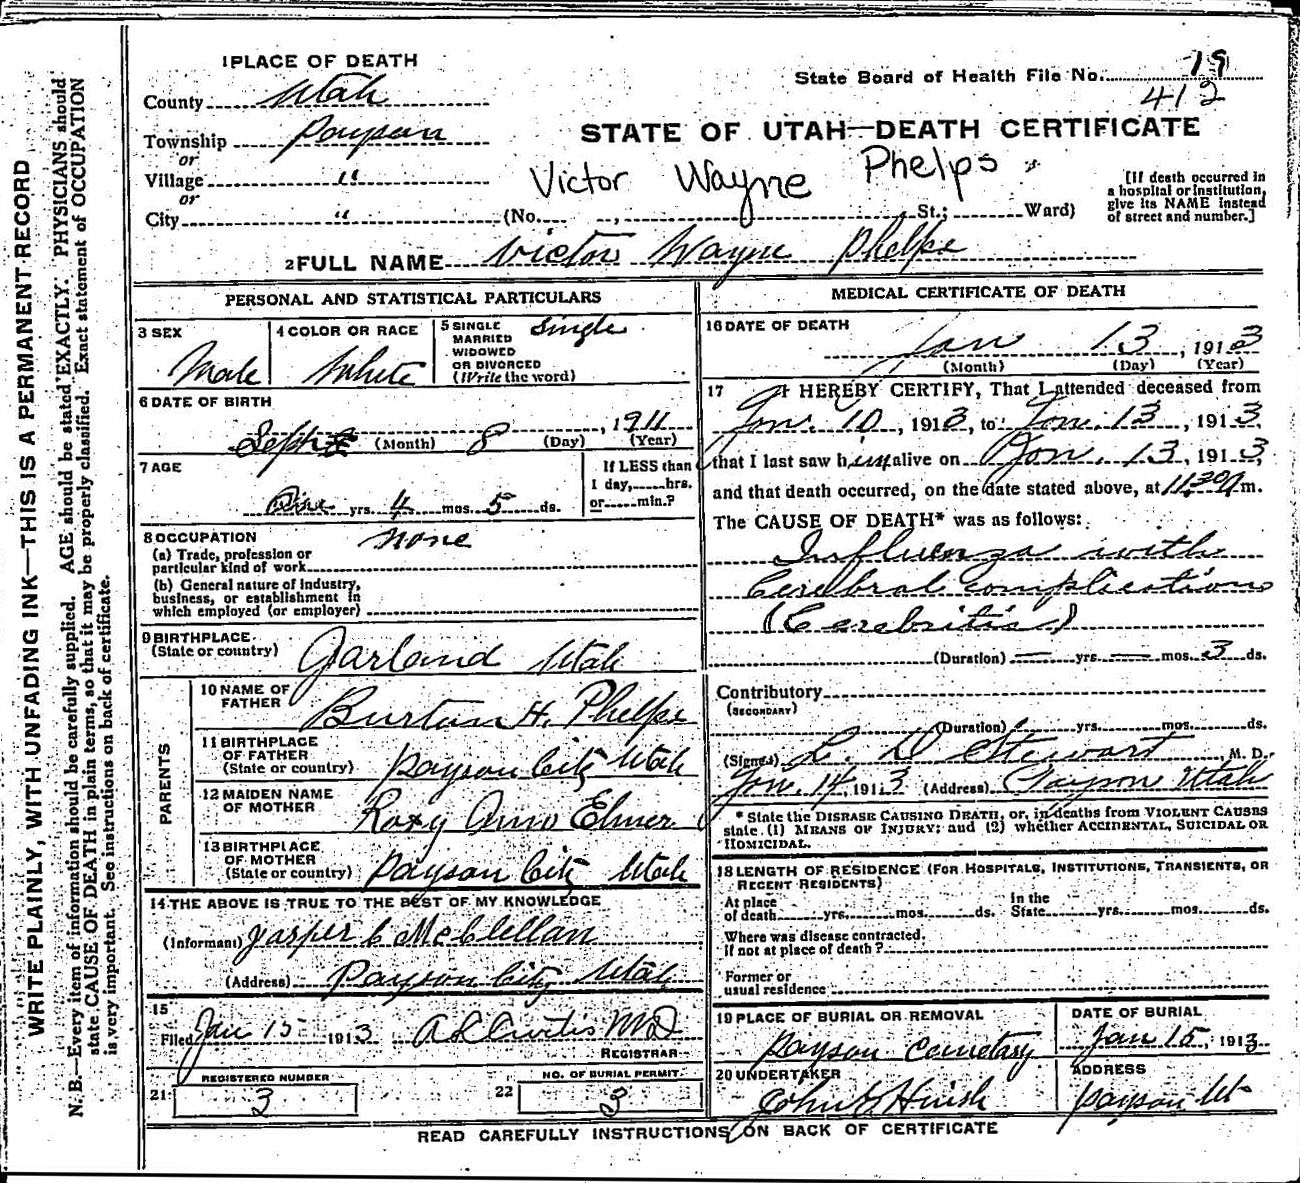 WRITE PLAINLY, WITH UNFADING INK—THIS IS A PERMANENT RECORD
N. B.—Every item of information should be carefully supplied. AGE should be stated EXACTLY. PHYSICIANS should
state CAUSE OF DEATH in plain terms, so that it may be properly classified. Exact statement of OCCUPATION
is very important. See instructions on back of certificate.
1 PLACE OF DEATH
County Utah
Township Payson
or
Village "
or
City " (No. , St.; Ward)
State Board of Health File No. 19
412
STATE OF UTAH—DEATH CERTIFICATE
Victor Wayne Phelps
[If death occurred in
a hospital or institution,
give its NAME instead
of street and number.]
2 FULL NAME Victor Wayne Phelps
PERSONAL AND STATISTICAL PARTICULARS
3 SEX
Male
4 COLOR OR RACE
White
5 SINGLE
MARRIED
WIDOWED
OR DIVORCED
(Write the word)
Single
6 DATE OF BIRTH
Sept 8, 1911
(Month) (Day) (Year)
7 AGE
One yrs. 4 mos. 5 ds.
If LESS than
1 day, hrs.
or min.?
8 OCCUPATION
none
(a) Trade, profession or
particular kind of work
(b) General nature of industry,
business, or establishment in
which employed (or employer)
9 BIRTHPLACE
(State or country)
Garland Utah
PARENTS
10 NAME OF
FATHER
Burton H. Phelps
11 BIRTHPLACE
OF FATHER
(State or country)
Payson City Utah
12 MAIDEN NAME
OF MOTHER
Roxy Ann Elmer
13 BIRTHPLACE
OF MOTHER
(State or country)
Payson City Utah
14 THE ABOVE IS TRUE TO THE BEST OF MY KNOWLEDGE
(Informant) Jasper C McClellan
(Address) Payson City Utah
15
Filed Jan 15 1913 A L Curtis MD
REGISTRAR
REGISTERED NUMBER
21 3
NO. OF BURIAL PERMIT
22 3
MEDICAL CERTIFICATE OF DEATH
16 DATE OF DEATH
Jan 13, 1913
(Month) (Day) (Year)
17 I HEREBY CERTIFY, That I attended deceased from
Jan. 10, 1913, to Jan. 13, 1913,
that I last saw him alive on Jan. 13, 1913,
and that death occurred, on the date stated above, at 11:30 a m.
The CAUSE OF DEATH* was as follows:
Influenza with
Cerebral complications
(Cerebritis)
(Duration) — yrs. — mos. 3 ds.
Contributory
(SECONDARY)
(Duration) yrs. mos. ds.
(Signed) L. D. Stewart M. D.
Jan. 14, 1913 (Address) Payson Utah
* State the DISEASE CAUSING DEATH, or, in deaths from VIOLENT CAUSES
state (1) MEANS OF INJURY; and (2) whether ACCIDENTAL, SUICIDAL OR
HOMICIDAL.
18 LENGTH OF RESIDENCE (FOR HOSPITALS, INSTITUTIONS, TRANSIENTS, OR
RECENT RESIDENTS)
At place
of death yrs. mos. ds.
In the
State yrs. mos. ds.
Where was disease contracted,
if not at place of death?
Former or
usual residence
19 PLACE OF BURIAL OR REMOVAL
Payson Cemetary
DATE OF BURIAL
Jan 15, 1913
20 UNDERTAKER
John Hirish
ADDRESS
Payson Ut
READ CAREFULLY INSTRUCTIONS ON BACK OF CERTIFICATE